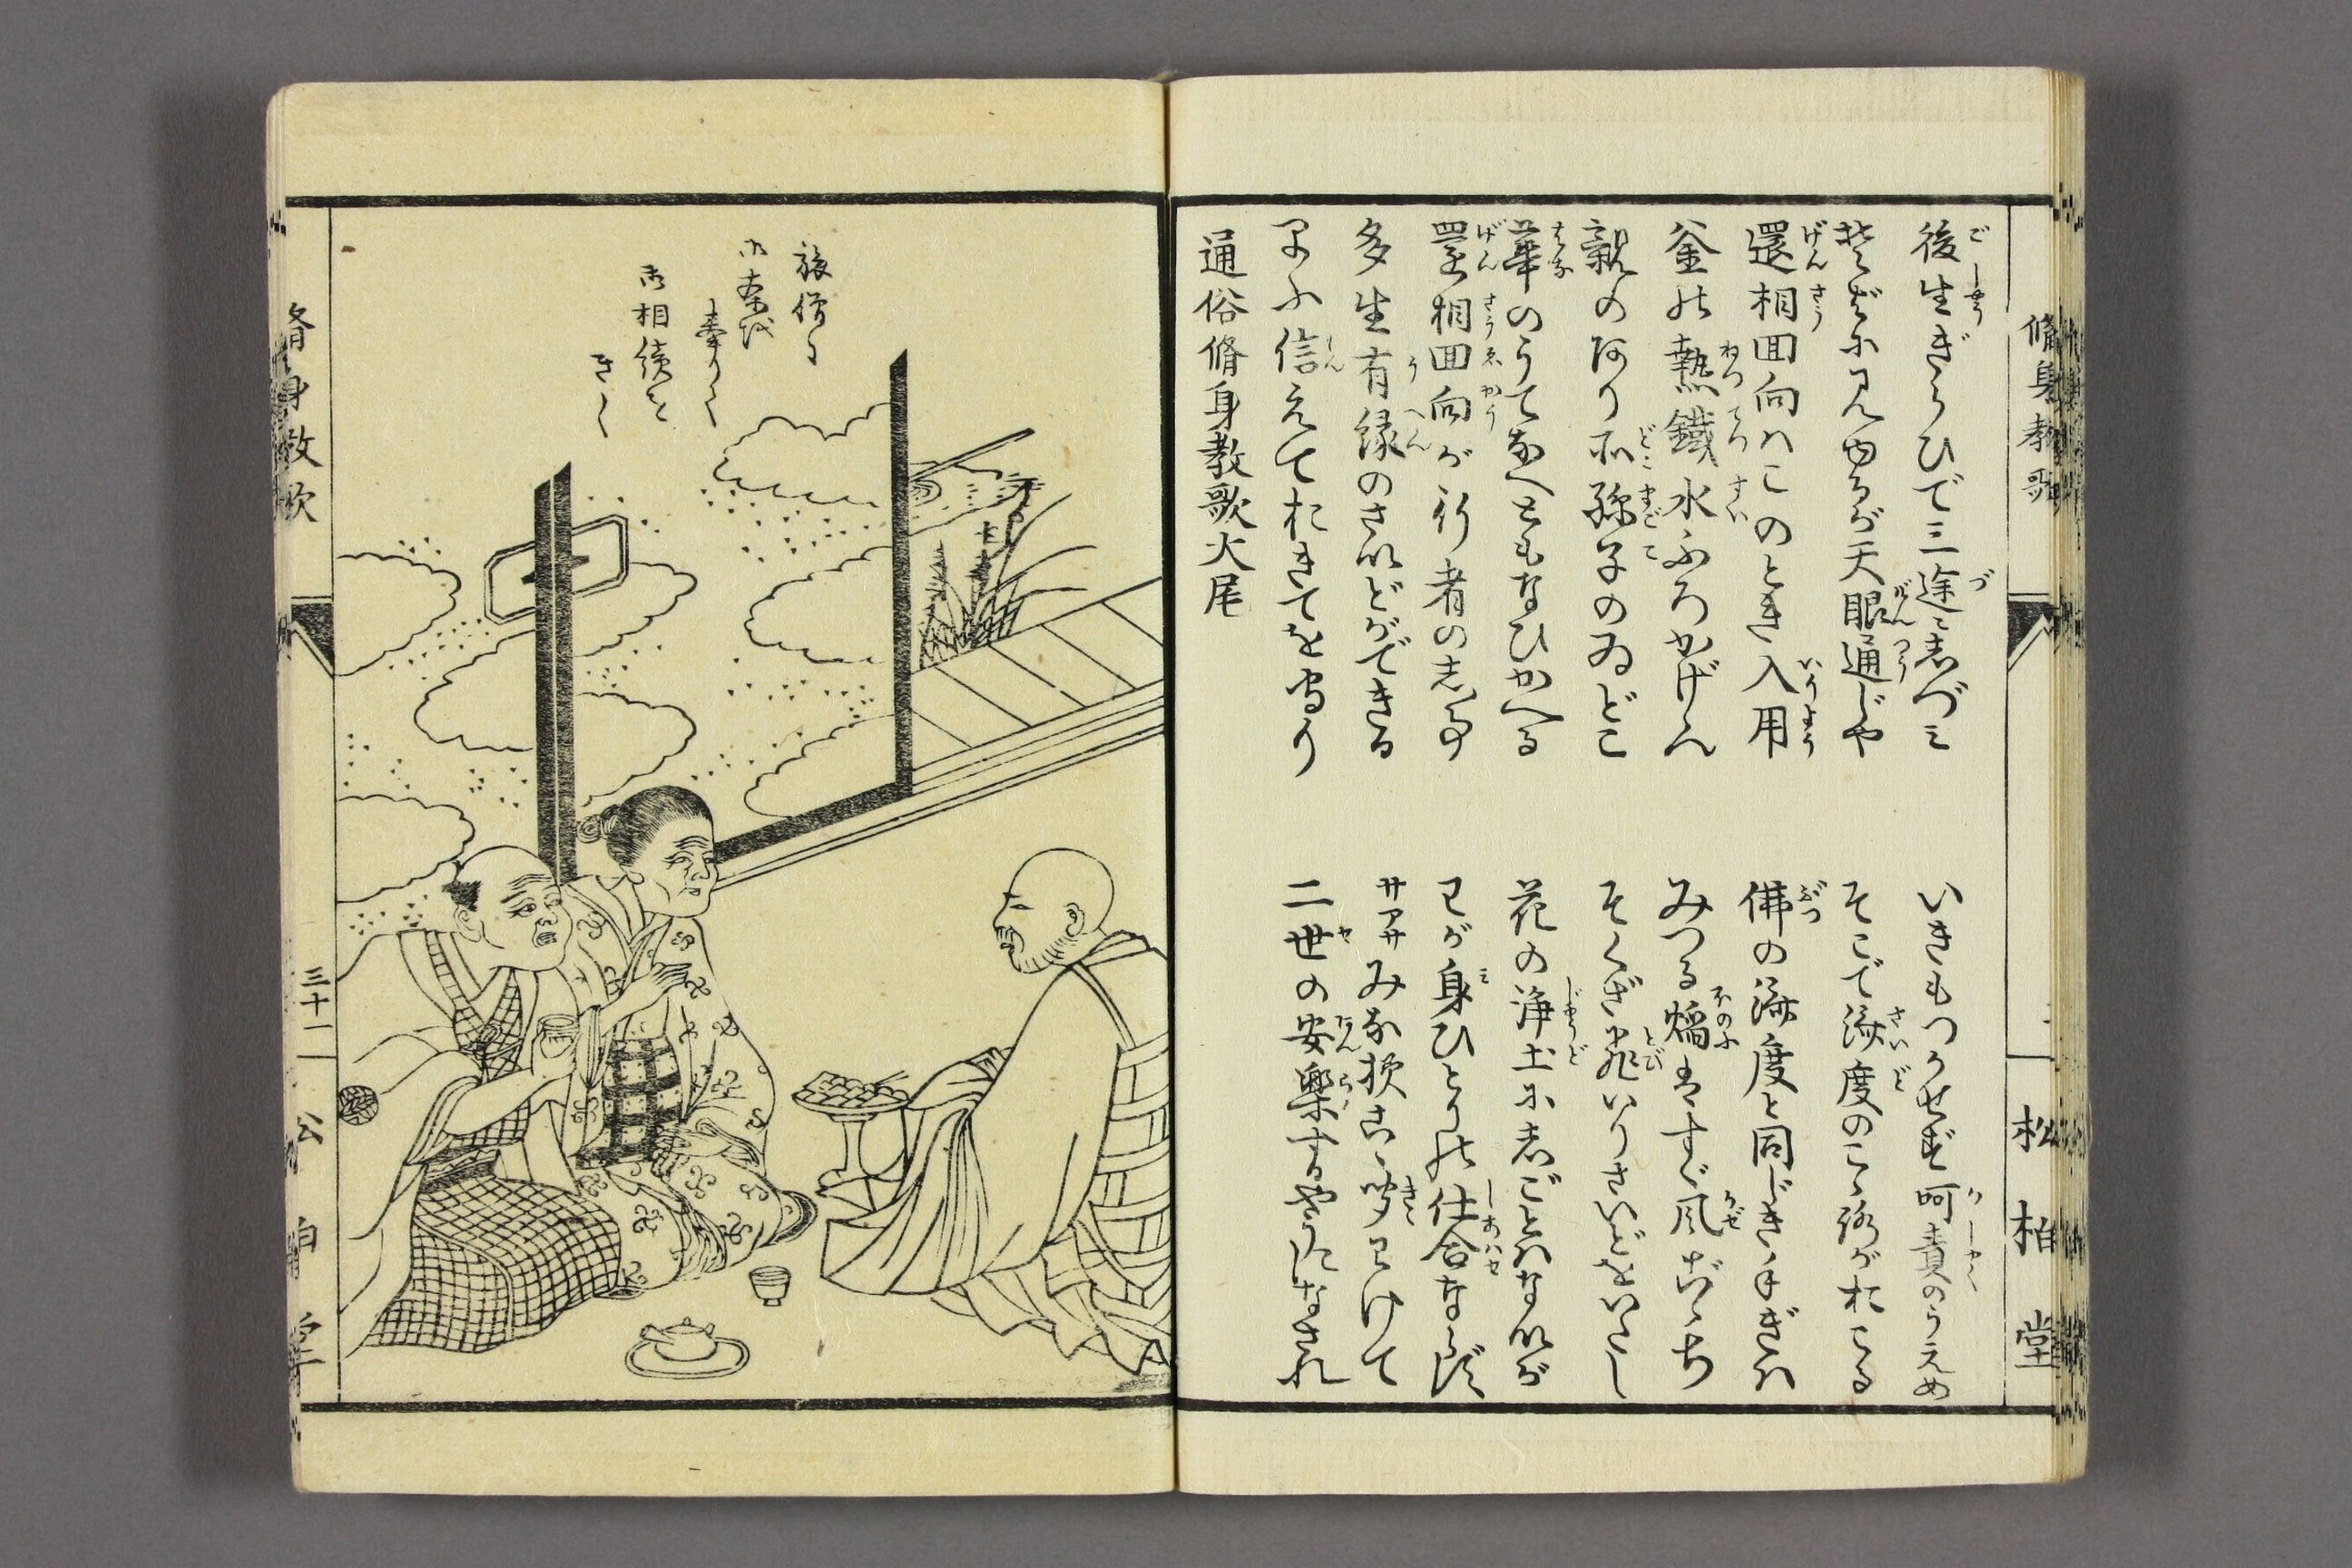 脩身教歌
松柏堂
後生ぎらひで三途ニ志づミ
いきもつかせず呵責のうえめ
見ゆるが天眼通じや
そこで済度のこゝろがおこる
還相回向ハこのとき入用
佛の済度と同じき手ぎハ
釜の熱鐵水ふろかげん
みつる焔はすゞ風だち
親のあり所孫子のゐどこ
そくざに飛いりさいどをいたし
華のうてなへともなひかへる
花の浄土に志ごとハないが
還相回向が行者の志事
わが身ひとりの仕合ならず
多生有縁のさいどができる
サアサみな様こゝ聞わけて
早ふ信えておきてを守り
二世の安樂するやうになされ
通俗脩身教歌大尾
旅僧に
御茶を
奉りて
御相續を
きく
脩身教歌
三十二
松柏堂